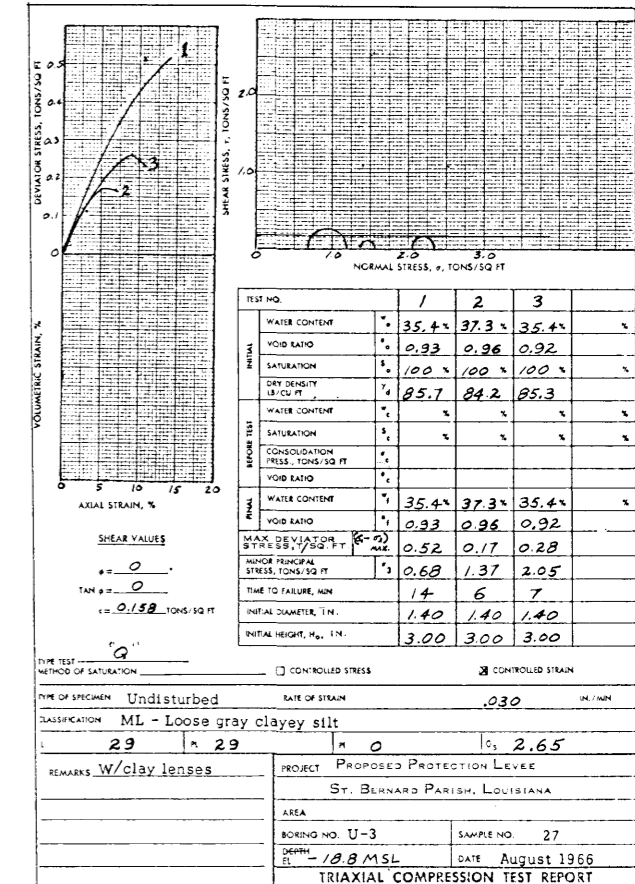 DEVIATOR STRESS, TONS/SQ FT
0.5
0.4
0.3
0.2
0.1
0
1
3
2
SHEAR STRESS, τ, TONS/SQ FT
2.0
1.0
0 1.0 2.0 3.0
NORMAL STRESS, σ, TONS/SQ FT
VOLUMETRIC STRAIN, %
0 5 10 15 20
AXIAL STRAIN, %
SHEAR VALUES
φ = 0 °
TAN φ = 0
c = 0.158 TONS/SQ FT
TEST NO. 1 2 3
INITIAL
WATER CONTENT w₀ 35.4 % 37.3 % 35.4 % %
VOID RATIO e₀ 0.93 0.96 0.92
SATURATION S₀ 100 % 100 % 100 % %
DRY DENSITY LB/CU FT γd 85.7 84.2 85.3
BEFORE TEST
WATER CONTENT wc % % % %
SATURATION Sc % % % %
CONSOLIDATION PRESS., TONS/SQ FT σc
VOID RATIO ec
FINAL
WATER CONTENT wf 35.4 % 37.3 % 35.4 % %
VOID RATIO ef 0.93 0.96 0.92
MAX DEVIATOR STRESS, T/SQ. FT (σ₁-σ₃) MAX. 0.52 0.17 0.28
MINOR PRINCIPAL STRESS, TONS/SQ FT σ₃ 0.68 1.37 2.05
TIME TO FAILURE, MIN 14 6 7
INITIAL DIAMETER, IN. 1.40 1.40 1.40
INITIAL HEIGHT, H₀, IN. 3.00 3.00 3.00
TYPE TEST "Q"
METHOD OF SATURATION CONTROLLED STRESS ☒ CONTROLLED STRAIN
TYPE OF SPECIMEN Undisturbed RATE OF STRAIN .030 IN./MIN
CLASSIFICATION ML - Loose gray clayey silt
L 29 PL 29 PI 0 Gs 2.65
REMARKS W/clay lenses
PROJECT PROPOSED PROTECTION LEVEE
ST. BERNARD PARISH, LOUISIANA
AREA
BORING NO. U-3 SAMPLE NO. 27
DEPTH EL - 18.8 MSL DATE August 1966
TRIAXIAL COMPRESSION TEST REPORT